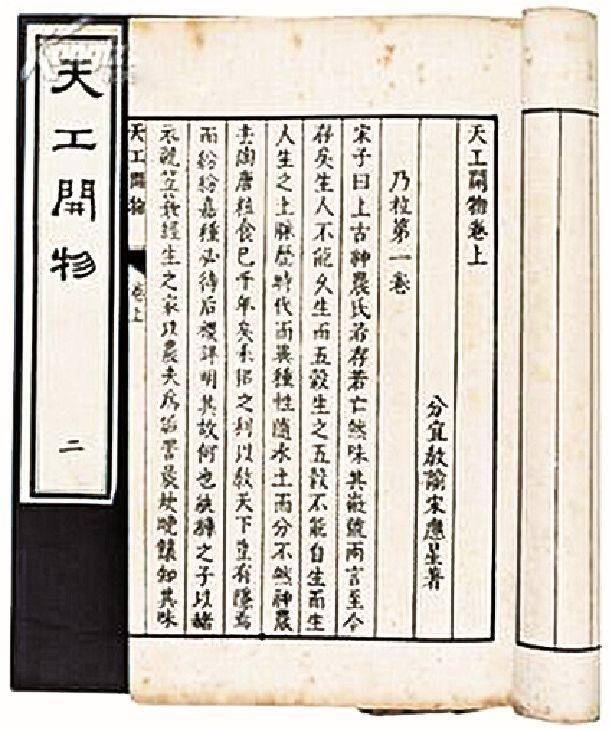 天工開物卷上
分宜敎諭宋應星著
乃粒第一卷
宋子曰上古神農氏若存若亡然味其徽號兩言至今
存矣生人不能久生而五穀生之五穀不能自生而生
人生之土脉歷時代而異種性隨水土而分不然神農
去陶唐粒食已千年矣耒耜之利以敎天下豈有隱焉
而紛紛嘉種必待后稷詳明其故何也紈褲之子以赭
衣視笠蓑經生之家以農夫爲詬詈晨炊晚饟知其味
天工開物 卷上
天工開物
二